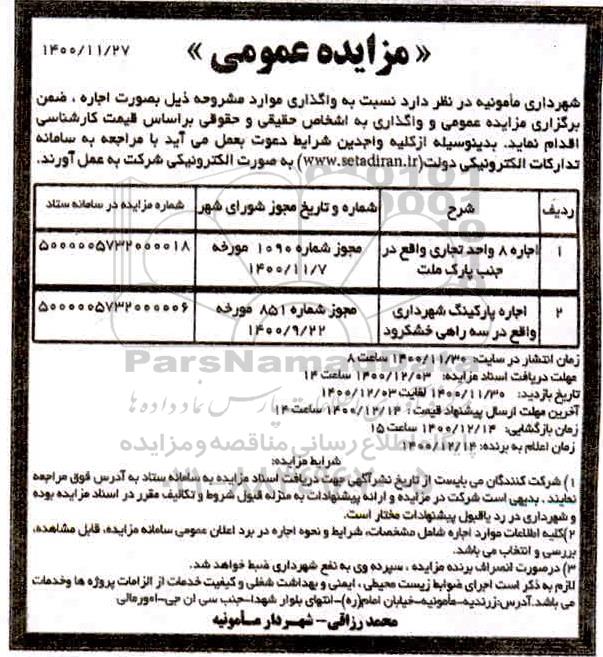 « مزایده عمومی »
۱۴۰۰/۱۱/۲۷
شهرداری مأمونیه در نظر دارد نسبت به واگذاری موارد مشروحه ذیل بصورت اجاره ، ضمن
برگزاری مزایده عمومی و واگذاری به اشخاص حقیقی و حقوقی براساس قیمت کارشناسی
اقدام نماید. بدینوسیله ازکلیه واجدین شرایط دعوت بعمل می آید با مراجعه به سامانه
تدارکات الکترونیکی دولت(www.setadiran.ir) به صورت الکترونیکی شرکت به عمل آورند.
ردیف شرح شماره و تاریخ مجوز شورای شهر شماره مزایده در سامانه ستاد
۱ اجاره ۸ واحد تجاری واقع در جنب پارک ملت مجوز شماره ۱۰۹۰ مورخه ۱۴۰۰/۱۱/۷ ۵۰۰۰۰۰۵۷۳۲۰۰۰۰۱۸
۲ اجاره پارکینگ شهرداری واقع در سه راهی خشکرود مجوز شماره ۸۵۱ مورخه ۱۴۰۰/۹/۲۲ ۵۰۰۰۰۰۵۷۳۲۰۰۰۰۰۶
زمان انتشار در سایت: ۱۴۰۰/۱۱/۳۰ ساعت ۸
مهلت دریافت اسناد مزایده: ۱۴۰۰/۱۲/۰۳ ساعت ۱۴
تاریخ بازدید: ۱۴۰۰/۱۱/۳۰ لغایت ۱۴۰۰/۱۲/۰۳
آخرین مهلت ارسال پیشنهاد قیمت: ۱۴۰۰/۱۲/۱۴ ساعت ۱۴
زمان بازگشایی: ۱۴۰۰/۱۲/۱۴ ساعت ۱۵
زمان اعلام به برنده: ۱۴۰۰/۱۲/۱۴
شرایط مزایده:
۱) شرکت کنندگان می بایست از تاریخ نشرآگهی جهت دریافت اسناد مزایده به سامانه ستاد به آدرس فوق مراجعه
نمایند . بدیهی است شرکت در مزایده و ارائه پیشنهادات به منزله قبول شروط و تکالیف مقرر در اسناد مزایده بوده
و شهرداری در رد یاقبول پیشنهادات مختار است.
۲)کلیه اطلاعات موارد اجاره شامل مشخصات، شرایط و نحوه اجاره در برد اعلان عمومی سامانه مزایده، قابل مشاهده،
بررسی و انتخاب می باشد.
۳) درصورت انصراف برنده مزایده ، سپرده وی به نفع شهرداری ضبط خواهد شد.
لازم به ذکر است اجرای ضوابط زیست محیطی ، ایمنی و بهداشت شغلی و کیفیت خدمات از الزامات پروژه ها وخدمات
می باشد.آدرس:زرندیه-مأمونیه-خیابان امام(ره)-انتهای بلوار شهدا-جنب سی ان جی-امورمالی
محمد رزاقی- شهردار مأمونیه
ParsNamadData
پایگاه اطلاع رسانی مناقصه و مزایده